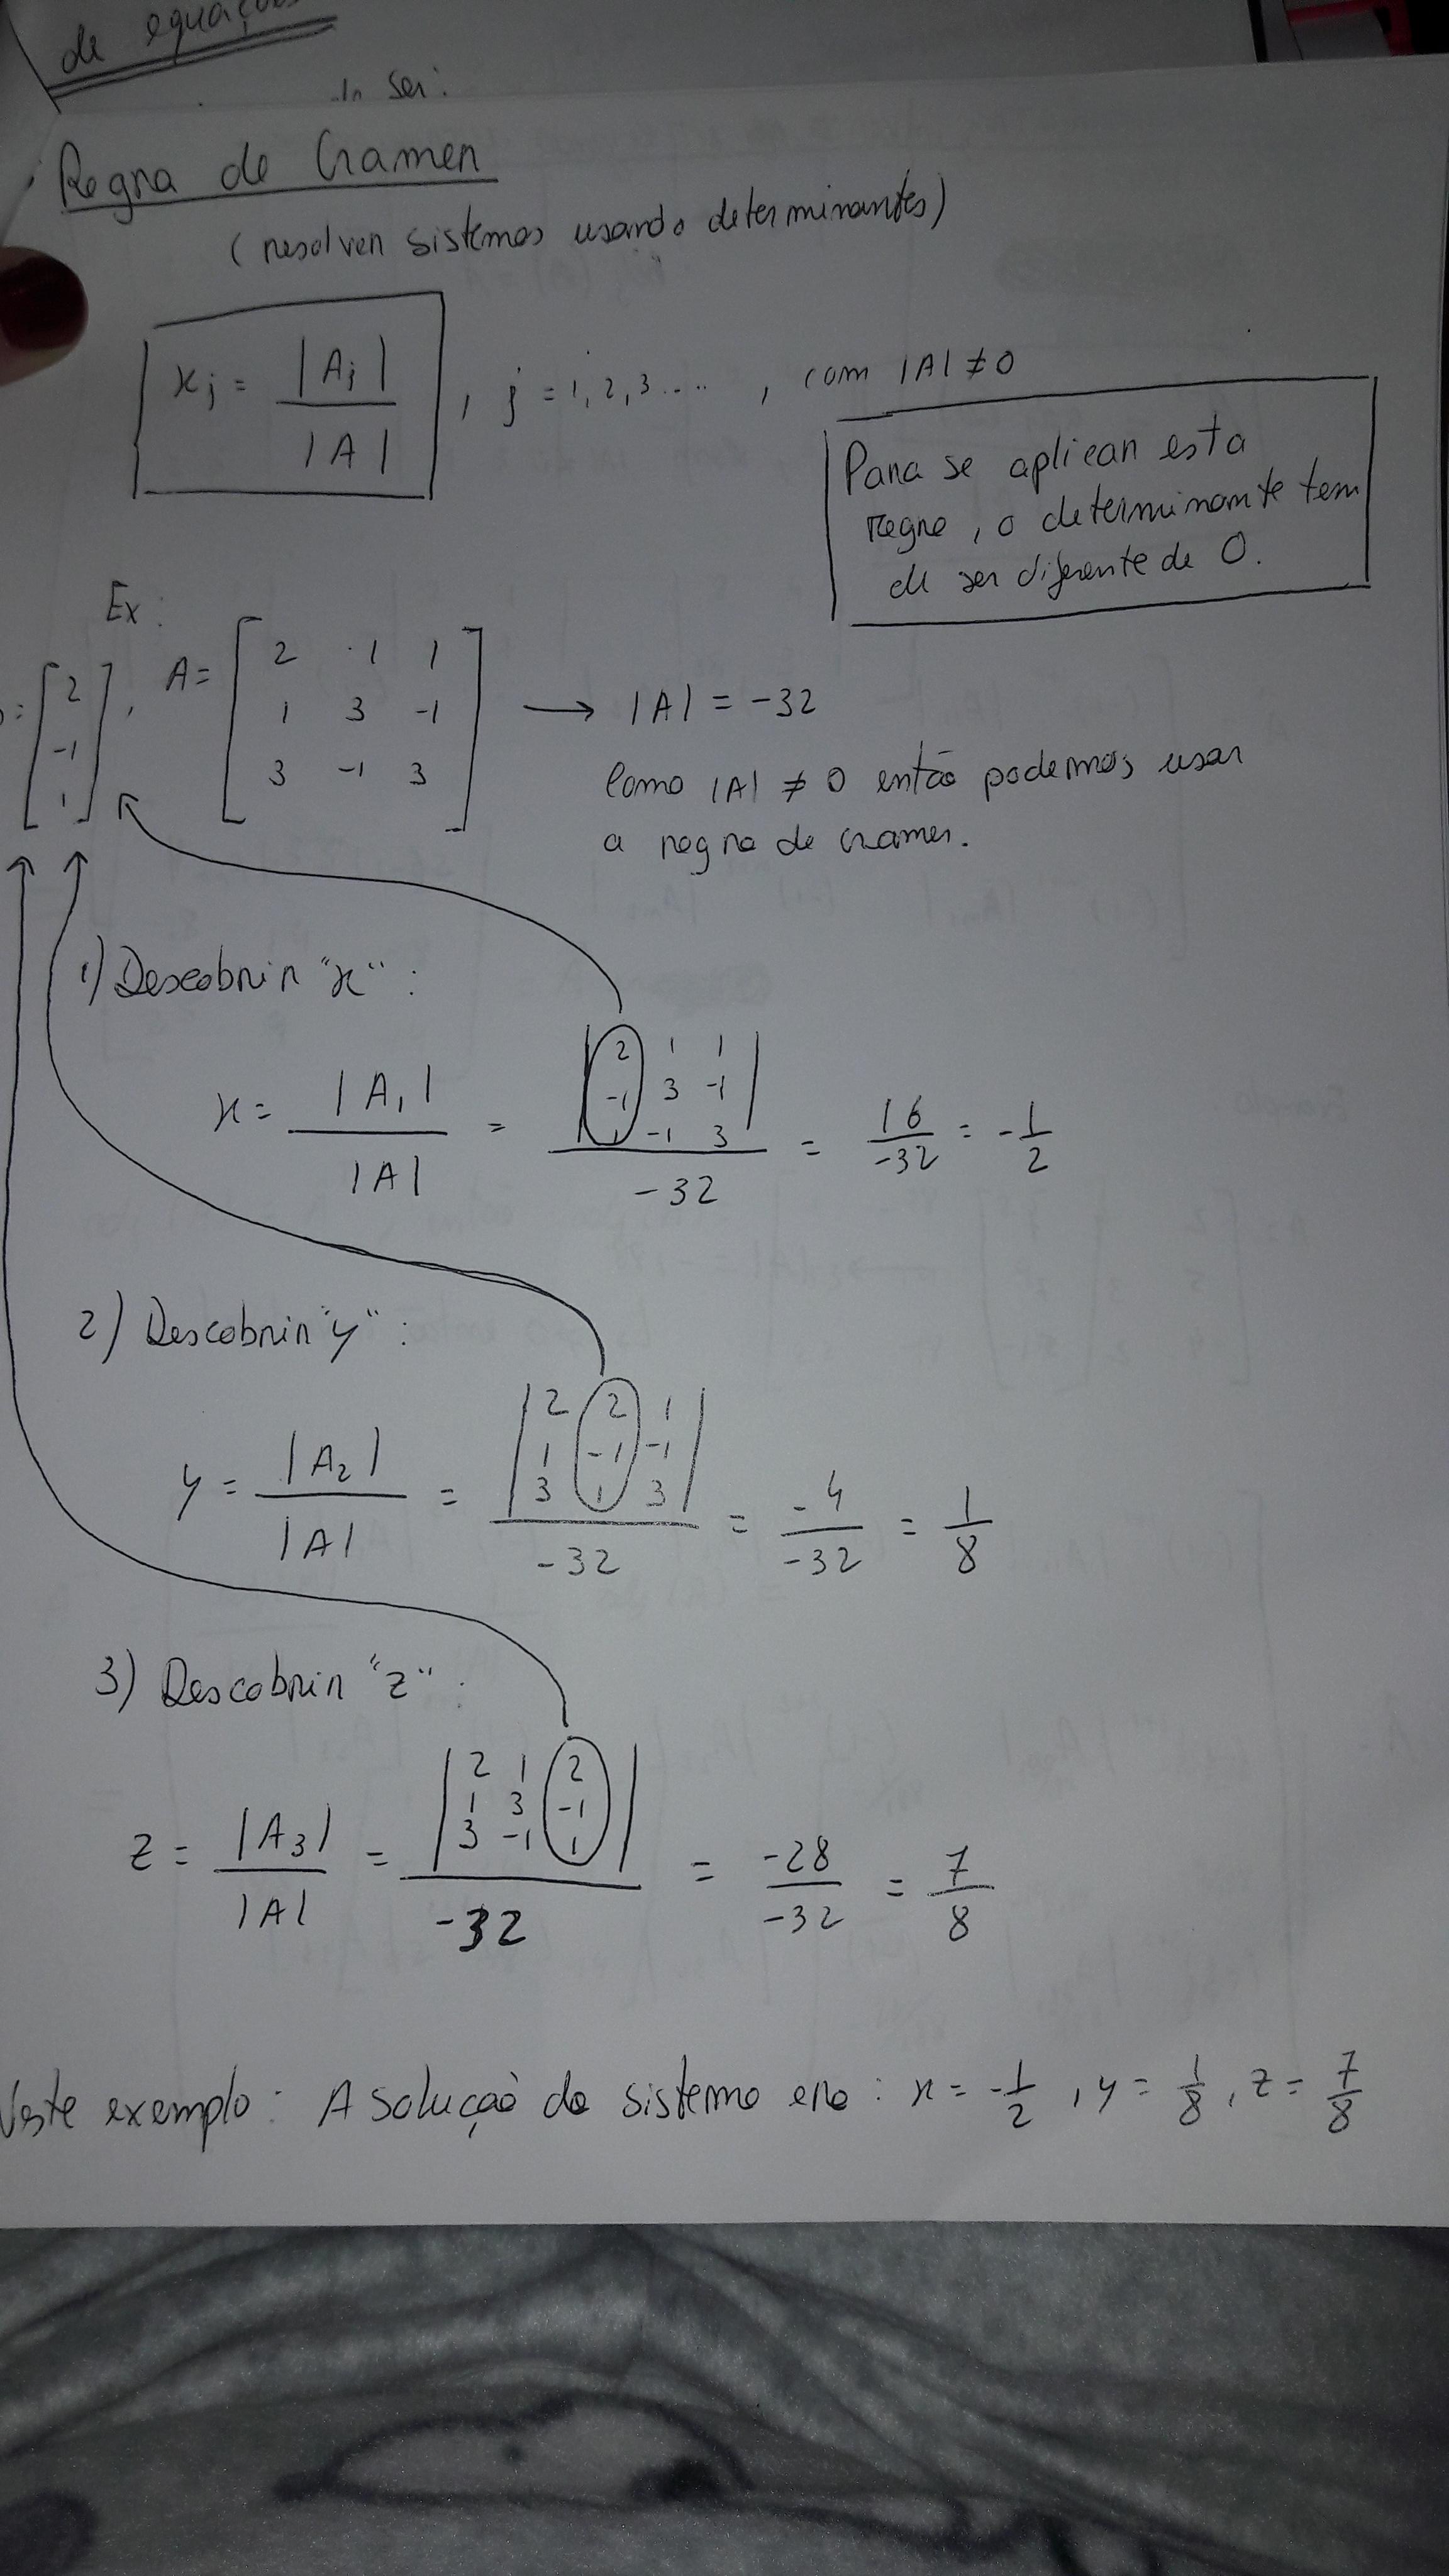 de equaçõ
ser:
Regra de Cramer
(resolver sistemas usando determinantes)
xj = |Aj| / |A| , j = 1, 2, 3 .... , com |A| ≠ 0
Para se aplicar esta
regra, o determinante tem
de ser diferente de 0.
Ex:
[2 -1 1] , A = [2 1 1; 1 3 -1; 3 -1 3] → |A| = -32
Como |A| ≠ 0 então podemos usar
a regra de cramer.
1) Descobrir "x" :
x = |A1| / |A| = |2 1 1; -1 3 -1; 1 -1 3| / -32 = 16 / -32 = -1/2
2) Descobrir "y" :
y = |A2| / |A| = |2 2 1; 1 -1 -1; 3 1 3| / -32 = -4 / -32 = 1/8
3) Descobrir "z" :
z = |A3| / |A| = |2 1 2; 1 3 -1; 3 -1 1| / -32 = -28 / -32 = 7/8
Neste exemplo: A solução do sistema era : x = -1/2 , y = 1/8 , z = 7/8